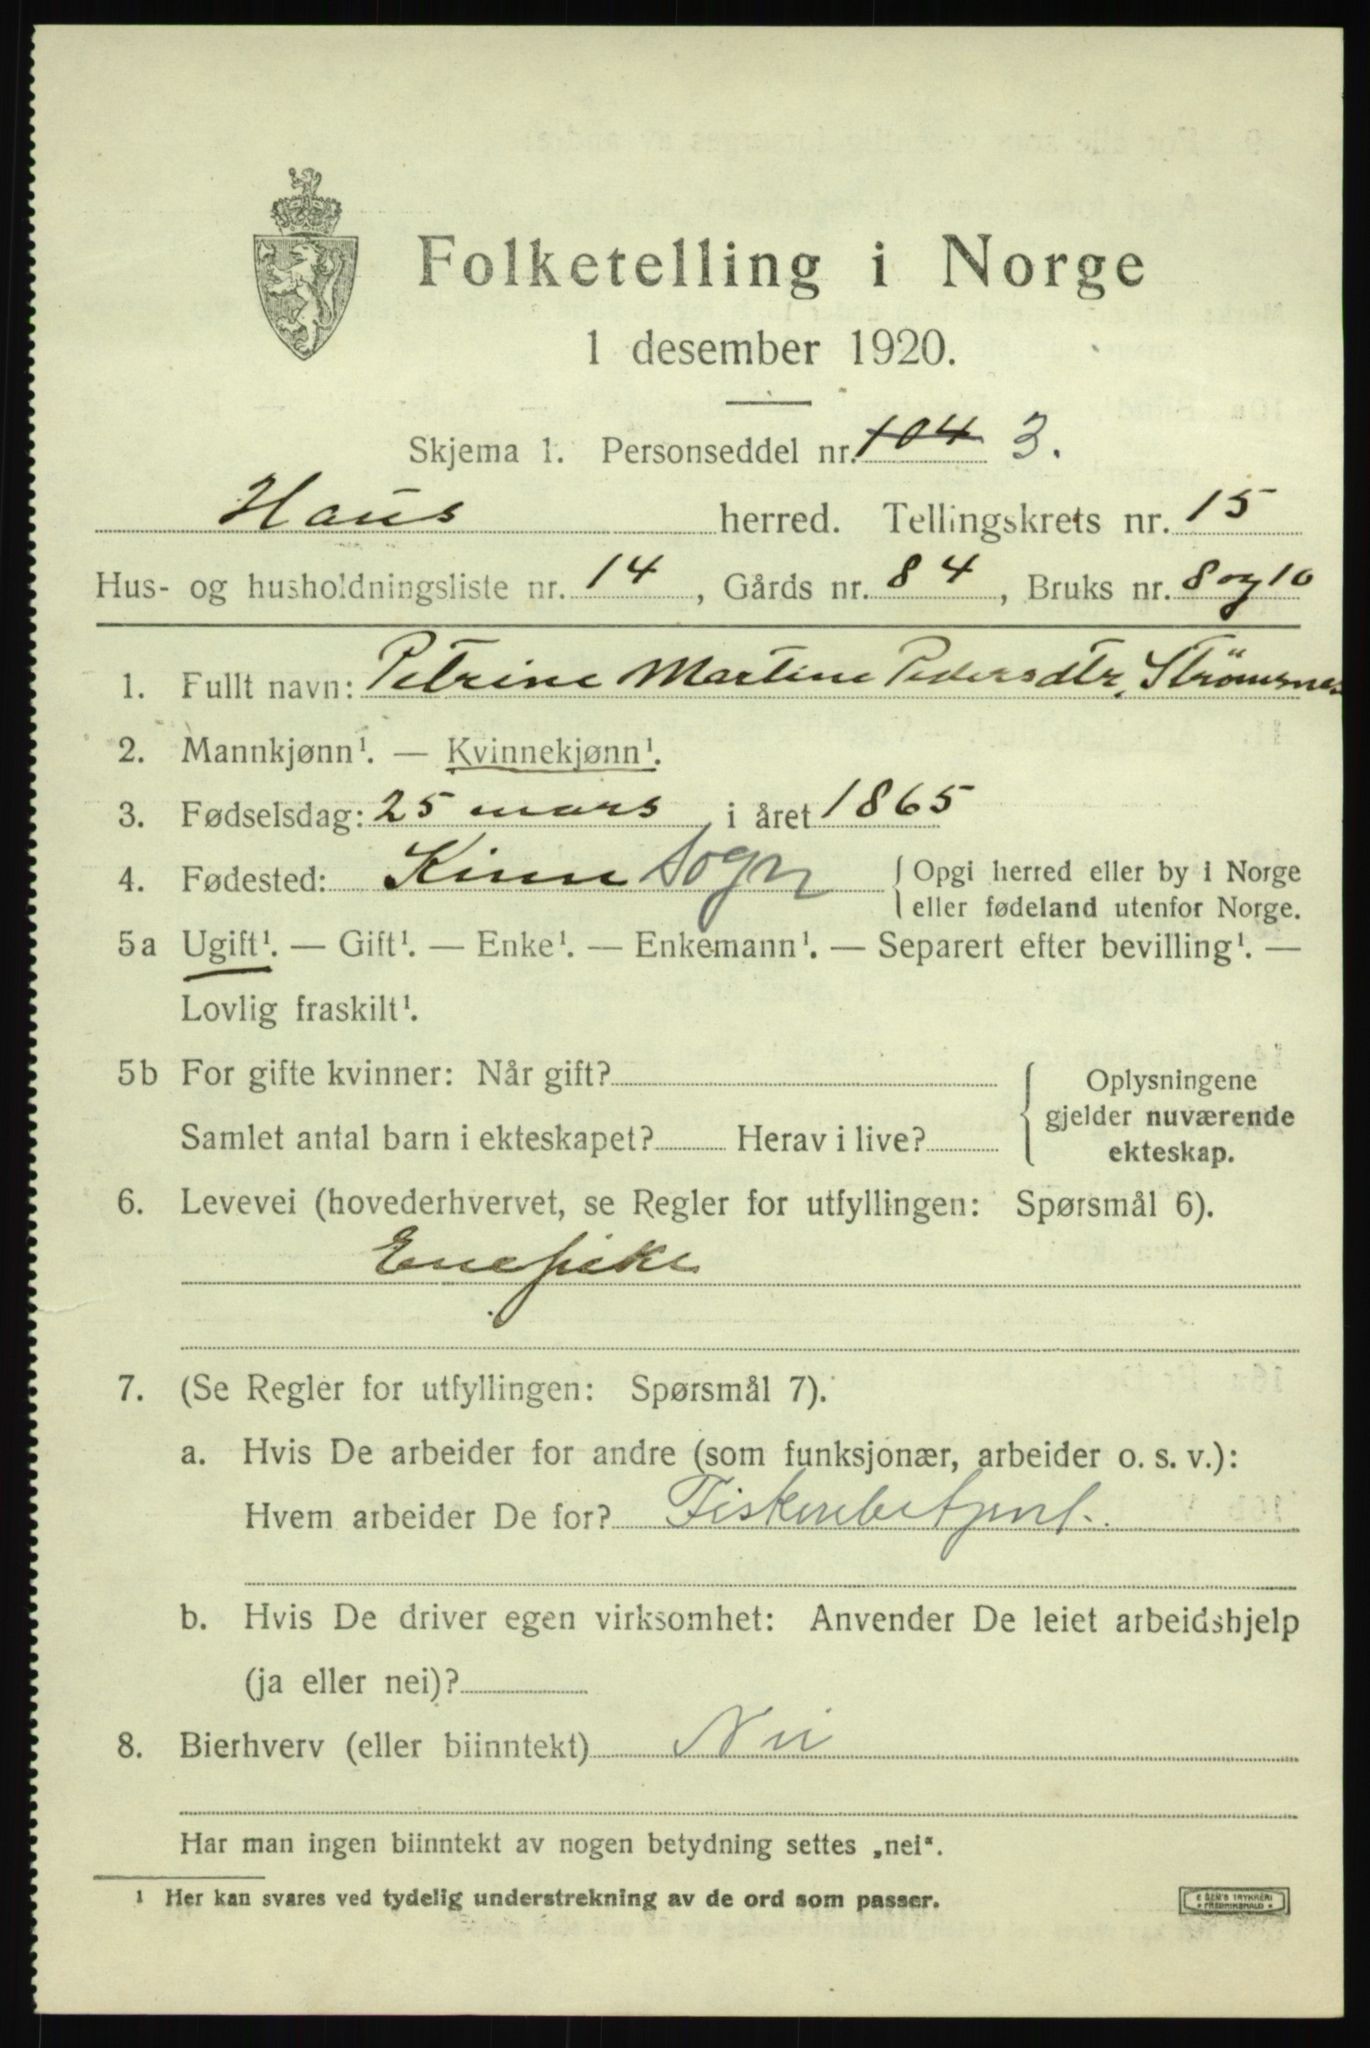 Folketelling i Norge
1 desember 1920.
Skjema 1. Personseddel nr. 104 3.
Haus herred. Tellingskrets nr. 15
Hus- og husholdningsliste nr. 14, Gårds nr. 84, Bruks nr. 8 og 10
1. Fullt navn: Petrine Martine Pedersdtr. Strömsnes
2. Mannkjønn¹. — Kvinnekjønn¹.
3. Fødselsdag: 25 mars i året 1865
4. Fødested: Kinn Sogn { Opgi herred eller by i Norge
eller fødeland utenfor Norge.
5a Ugift¹. — Gift¹. — Enke¹. — Enkemann¹. — Separert efter bevilling¹. —
Lovlig fraskilt¹.
5b For gifte kvinner: Når gift? { Oplysningene
gjelder nuværende
Samlet antal barn i ekteskapet? Herav i live?
ekteskap.
6. Levevei (hovederhvervet, se Regler for utfyllingen: Spørsmål 6).
7. (Se Regler for utfyllingen: Spørsmål 7).
a. Hvis De arbeider for andre (som funksjonær, arbeider o. s. v.):
Hvem arbeider De for?
b. Hvis De driver egen virksomhet: Anvender De leiet arbeidshjelp
(ja eller nei)?
8. Bierhverv (eller biinntekt) Nei
Har man ingen biinntekt av nogen betydning settes „nei".
¹ Her kan svares ved tydelig understrekning av de ord som passer.